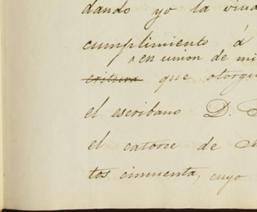 dando yo la viud
cumplimiento á
s en union de mi
que otorgu
el escribano D.
el catorce de
tos cincuenta, cuyo